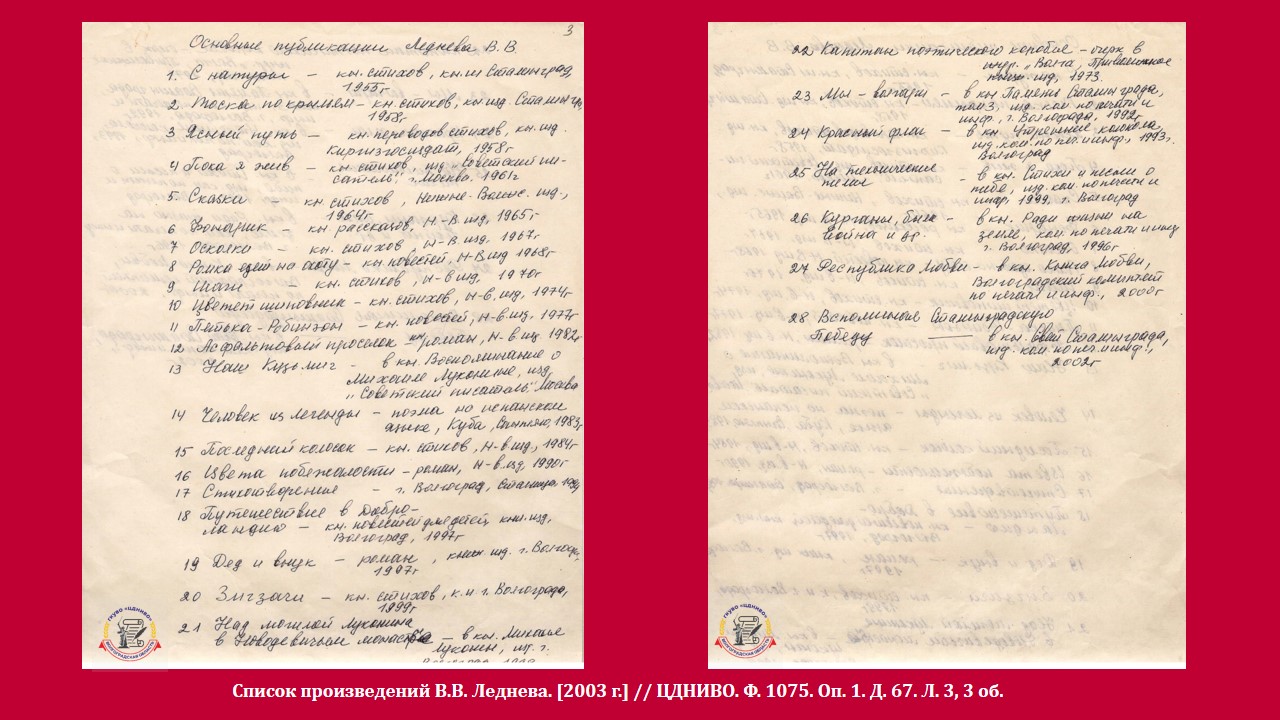 3
Основные публикации Леднева В.В
1. С натуры – кн. стихов, кн. изд Сталинград,
1955г
2. Тоска по крыльям – кн. стихов, кн изд. Сталингр,
1958г
3 Ясный путь – кн. переводов стихов, кн. изд.
Киргизгосиздат, 1958г
4 Пока я жив – кн. стихов, изд „Советский пи-
сатель", г. Москва. 1961г
5. Сказки – кн стихов, Нижне-Волжс. изд.,
1964г
6 Фонарик – кн. рассказов, Н.-В изд, 1965г
7 Осколки – кн. стихов, Н-В изд. 1967г
8 Ромка идет на охоту – кн. повестей, Н-В изд 1968г
9 – кн. стихов, Н-в изд, 1970г
10 Цветет шиповник – кн. стихов, Н-в. изд, 1974г
11 Петька-Робинзон – кн. повестей, Н-в.изд. 1977г
12 Асфальтовый проселок – роман, Н-в изд 1982г
13 Наш Кузьмич – в кн. Воспоминание о
Михаиле Луконине, изд,
„Советский писатель", Москва
14 Человек из легенды – поэма на испанском
языке, Куба, 1983г
15 Последний колосок – кн. стихов, Н-в изд, 1984г
16 Цвета побежалости – роман, Н-в.изд, 1990г
17 Стихотворение – г. Волгоград, Станица
18 Путешествие в Добро-
ландию – кн. повестей для детей, кн. изд,
Волгоград, 1997г
19 Дед и внук – роман, изд. г. Волгогр,
1997г
20 Зигзаги – кн. стихов, к.и. г. Волгограда,
1999г
21 Над могилой Луконина
в Новодевичьем – в кн. Михаил
Луконин, г.
22 Капитан поэтического корабля – очерк в
жур. „Волга", Приволжское
изд, 1973.
23 Мы – волгари – в кн Памяти Сталинграда,
том 3, изд. ком по печати и
инф., г. Волгограда, 1992г
24 Красный флаг – в кн. Утренние колокола,
изд. ком. по печ. и инф., 1993г.
Волгоград
25 На
– в кн. Стихи и песни о
небе, изд. ком по печати и
инф, 1999г. г. Волгоград
26 Курганы, была – в кн. Ради жизни на
война и др. земле, ком по печати и инф
г. Волгоград, 1996г
27 Республика Любви – в кн. Книга Любви,
Волгоградский комитет
по печати и инф., 2000г
28 Вспоминая Сталинградскую
Победу – в кн. Сталинграда,
изд. ком. по печ. и инф.,
2002г
ГКУВО «ЦДНИВО»
ВОЛГОГРАДСКАЯ ОБЛАСТЬ
ГКУВО «ЦДНИВО»
ВОЛГОГРАДСКАЯ ОБЛАСТЬ
Список произведений В.В. Леднева. [2003 г.] // ЦДНИВО. Ф. 1075. Оп. 1. Д. 67. Л. 3, 3 об.